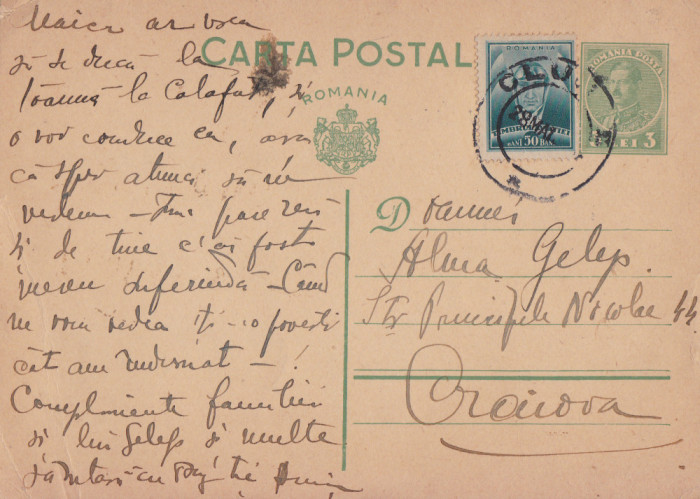 Maica ar vrea
să se ducă la
Ioana la Calafat, și
o voi conduce eu, așa
că sper atunci să ne
vedem — Îmi pare rău
și de tine c'ai fost
mereu suferindă — Când
ne vom vedea îți -oi povesti
cât am îndurat — !
Complimente familiei
și lui Gelep și multe
sărutări
CARTA POSTALĂ
ROMANIA
ROMANIA
TIMBRUL AVIAȚIEI
BANI 50 BANI
CLUJ
28 MAI
ROMANIA POSTA
3 LEI 3
Doamnei
Alma Gelep
Str Principele Nicolae 44
Craiova